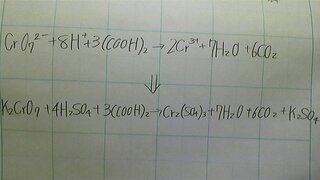 CrO₇²⁻+8H⁺+3(COOH)₂→2Cr³⁺+7H₂O+6CO₂
⇓
K₂CrO₇+4H₂SO₄+3(COOH)₂→Cr₂(SO₄)₃+7H₂O+6CO₂+K₂SO₄